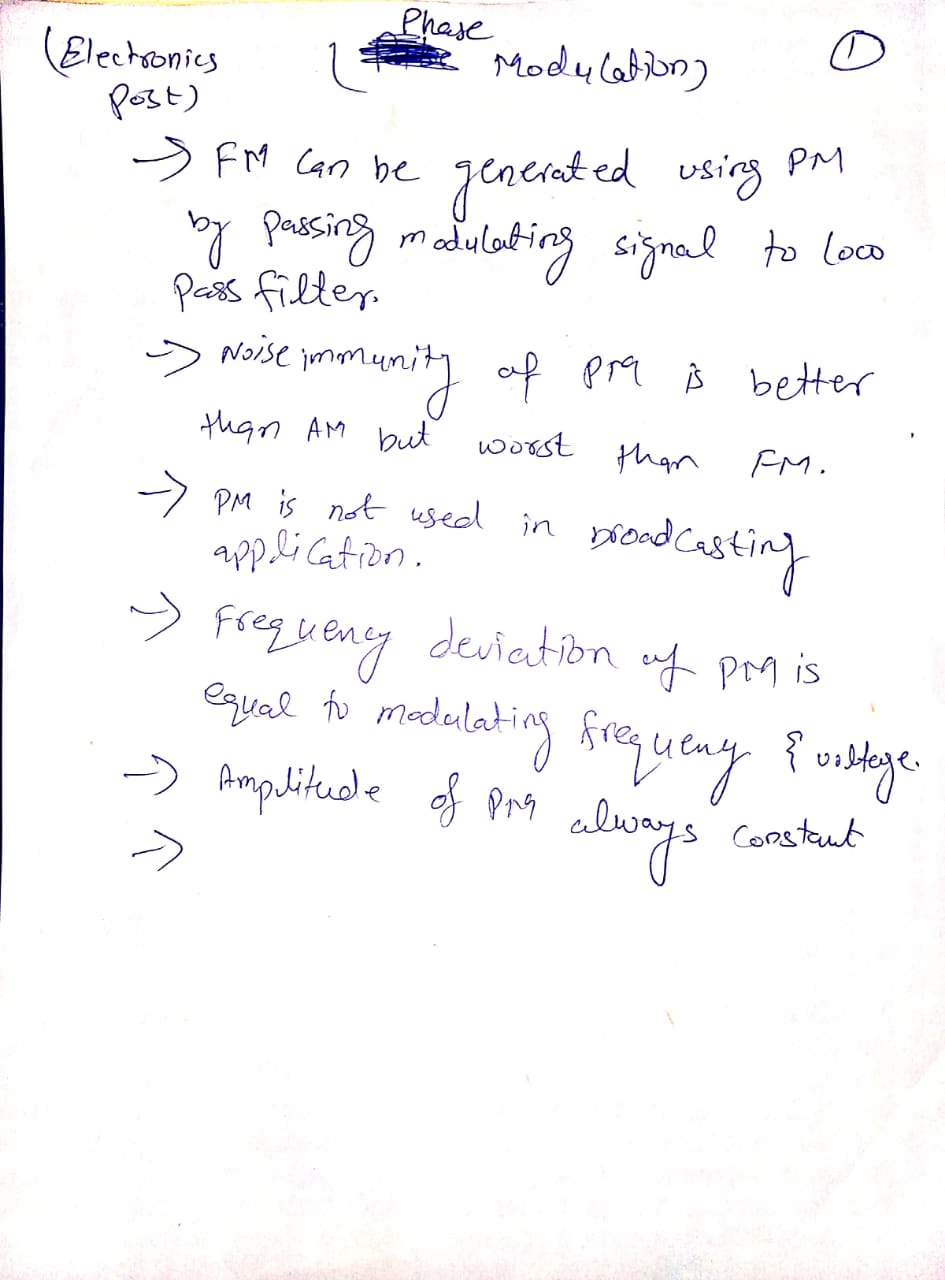 (Electronics Phase Modulation) 1
Post)
→ FM Can be generated using PM
by Passing modulating signal to low
Pass filter.
→ Noise immunity of PM is better
than AM but worst than FM.
→ PM is not used in broadcasting
application.
→ Frequency deviation of PM is
equal to modulating frequency & voltage.
→ Amplitude of PM always constant
→